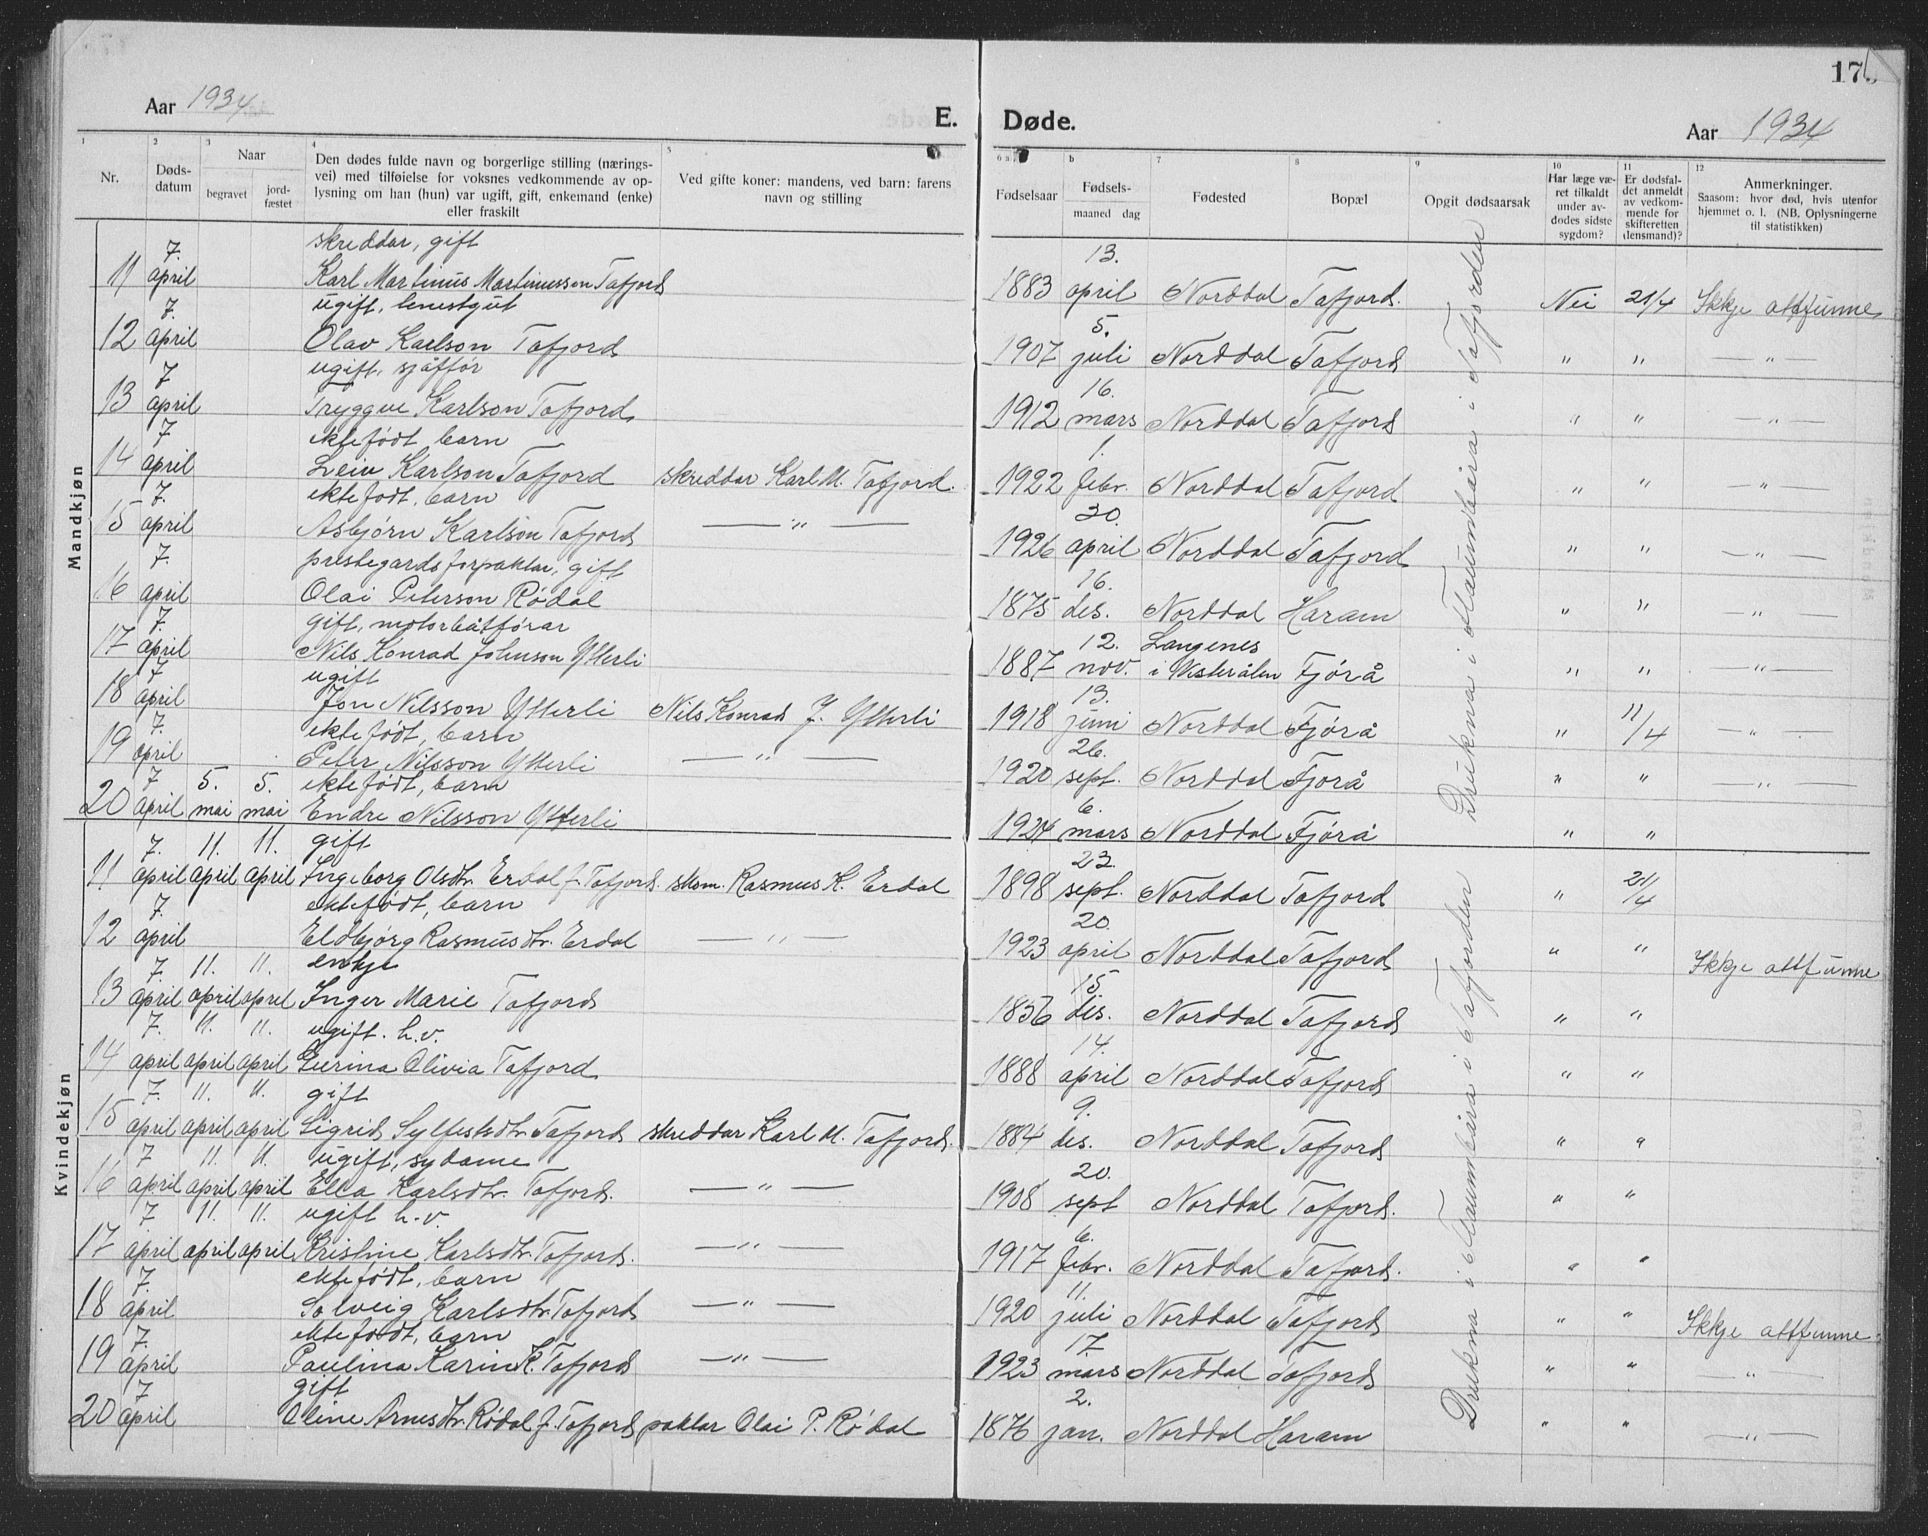 Aar 1934
E.
Døde.
17
Aar 1934
1
2
3
4
5
6 a
b
7
8
9
10
11
12
Nr.
Døds-
datum
Naar
begravet
jord-
fæstet
Den dødes fulde navn og borgerlige stilling (nærings-
vei) med tilføielse for voksnes vedkommende av op-
lysning om han (hun) var ugift, gift, enkemand (enke)
eller fraskilt
Ved gifte koner: mandens, ved barn: farens
navn og stilling
Fødselsaar
Fødsels-
maaned dag
Fødested
Bopæl
Opgit dødsaarsak
Har læge væ-
ret tilkaldt
under av-
dødes sidste
sygdom?
Er dødsfal-
det anmeldt
av vedkom-
mende for
skifteretten
(lensmand)?
Anmerkninger.
Saasom: hvor død, hvis utenfor
hjemmet o. l. (NB. Oplysningerne
til statistikken)
Mandkjøn
7. skreddar, gift 13.
11 april Karl Martinus Martinusson Tafjord 1883 april Norddal Tafjord. Nei 21/4 Ikkje attfunne
7. ugift, tenestgut 5.
12 april Olav Karlson Tafjord 1907 juli Norddal Tafjord " " — " —
7 ugift, sjåffør 16.
13 april Tryggve Karlson Tafjord 1912 mars Norddal Tafjord " " — " —
7 ektefødt, barn 1.
14 april Leiv Karlson Tafjord skreddar Karl M. Tafjord. 1922 febr. Norddal Tafjord " " — " —
7. ektefødt, barn 30.
15 april Asbjørn Karlson Tafjord — " — 1926 april Norddal Tafjord " " — " —
7. prestegardsforpaktar, gift 16.
16 april Olai Peterson Rødal 1875 des. Norddal Haram " " — " —
7. gift, motorbåtførar 12. Langenes
17 april Nils Konrad Johnson Ytterli 1887 nov. i Vesterålen Fjørå " " — " —
7 ugift 13.
18 april Jon Nilsson Ytterli Nils Konrad J. Ytterli 1918 juni Norddal Fjørå " 11/4 — " —
7. ektefødt, barn 26.
19 april Peter Nilsson Ytterli — " — 1920 sept. Norddal Fjørå " " — " —
7 5. 5. ektefødt, barn 6.
20 april mai mai Endre Nilsson Ytterli 1924 mars Norddal Fjørå " "
Drukna i flaumbåra i Tafjorden
Kvindekjøn
7. 11. 11. gift 23.
11 april april april Ingeborg Olsdtr. Erdal f. Tafjord. skom. Rasmus K. Erdal 1898 sept. Norddal Tafjord " 21/4
7. ektefødt, barn 20.
12 april Eldbjørg Rasmusdtr. Erdal — " — 1923 april Norddal Tafjord " " Ikkje attfunne
7. 11. 11. enkje 15.
13 april april april Inger Marie Tafjord 1856 des. Norddal Tafjord " "
7. 11. 11. ugift. h.v. 14.
14 april april april Gurina Olivia Tafjord 1888 april Norddal Tafjord " "
7. 11. 11. gift 9.
15 april april april Sigrid Sylfestsdtr. Tafjord skreddar Karl M. Tafjord. 1884 des. Norddal Tafjord " "
7 11. 11. ugift, sydame 20.
16 april april april Ella Karlsdtr. Tafjord. — " — 1908 sept Norddal Tafjord. " "
7. 11. 11. ugift h.v. 6.
17 april april april Kristine Karlsdtr. Tafjord. — " — 1917 febr. Norddal Tafjord. " "
7. ektefødt, barn 11.
18 april Solveig Karlsdtr. Tafjord — " — 1920 juli Norddal Tafjord " " Ikkje attfunne
7. ektefødt, barn 17.
19 april Paulina Karin K. Tafjord — " — 1923 mars Norddal Tafjord " " — " —
7 gift 2.
20 april Oline Arnesdtr. Rødal f. Tafjord paktar Olai P. Rødal 1876 jan. Norddal Haram " " — " —
Drukna i flaumbåra i Tafjorden